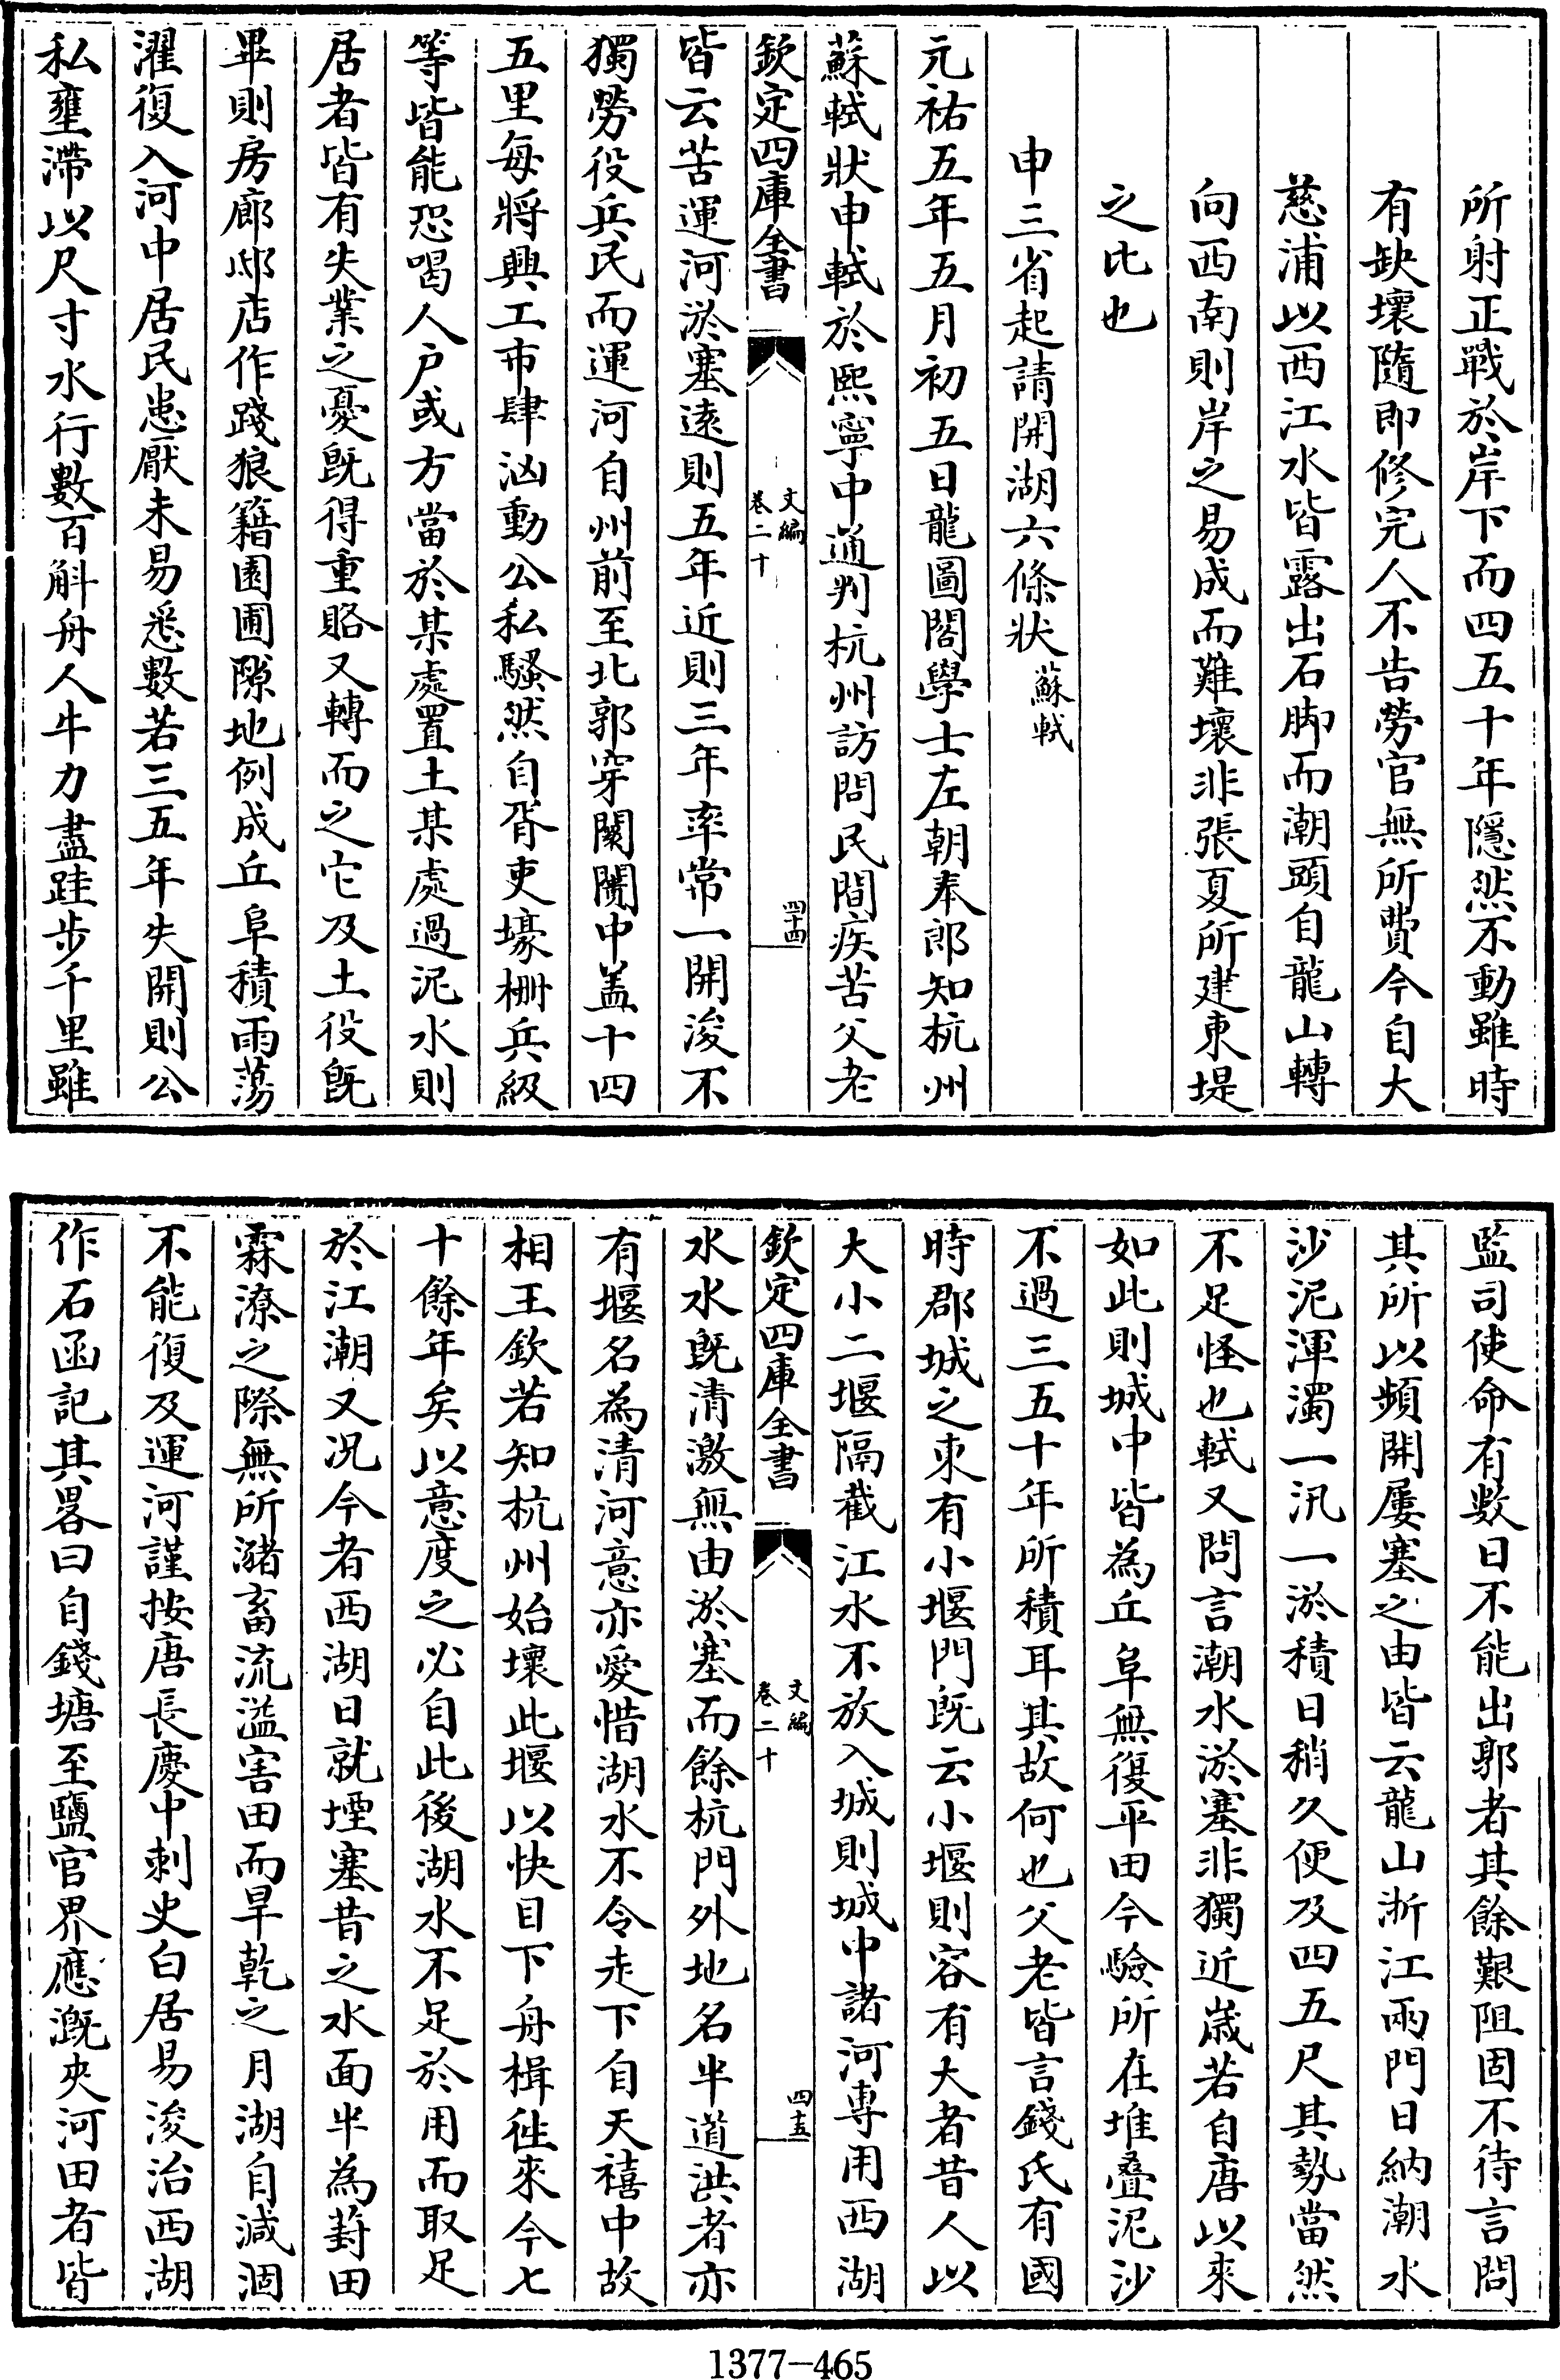 所射正戰於岸下而四五十年隱然不動雖時
有缺壞隨即修完人不告勞官無所費今自大
慈浦以西江水皆露出石脚而潮頭自龍山轉
向西南則岸之易成而難壞非張夏所建東堤
之比也
申三省起請開湖六條狀蘇軾
元祐五年五月初五日龍圖閣學士左朝奉郎知杭州
蘇軾狀申軾於熙寧中通判杭州訪問民間疾苦父老
欽定四庫全書 文編 卷二十 四十四
皆云苦運河淤塞遠則五年近則三年率常一開浚不
獨勞役兵民而運河自州前至北郭穿闤闠中盖十四
五里每將興工市肆洶動公私騷然自胥吏壕柵兵級
等皆能恐喝人户或方當於某處置土某處過泥水則
居者皆有失業之憂既得重賂又轉而之它及土役既
畢則房廊邸店作踐狼籍園圃隙地例成丘阜積雨蕩
濯復入河中居民患厭未易悉數若三五年失開則公
私壅滯以尺寸水行數百斛舟人牛力盡跬步千里雖
監司使命有數日不能出郭者其餘艱阻固不待言問
其所以頻開屢塞之由皆云龍山浙江兩門日納潮水
沙泥渾濁一汛一淤積日稍久便及四五尺其勢當然
不足怪也軾又問言潮水淤塞非獨近歲若自唐以來
如此則城中皆為丘阜無復平田今驗所在堆疊泥沙
不過三五十年所積耳其故何也父老皆言錢氏有國
時郡城之東有小堰門既云小堰則容有大者昔人以
大小二堰隔截江水不放入城則城中諸河專用西湖
欽定四庫全書 文編 卷二十 四十五
水水既清澈無由淤塞而餘杭門外地名半道洪者亦
有堰名為清河意亦愛惜湖水不令走下自天禧中故
相王欽若知杭州始壞此堰以快目下舟楫徃來今七
十餘年矣以意度之必自此後湖水不足於用而取足
於江潮又况今者西湖日就堙塞昔之水面半為葑田
霖潦之際無所瀦畜流溢害田而旱乾之月湖自減涸
不能復及運河謹按唐長慶中刺史白居易浚治西湖
作石函記其畧曰自錢塘至鹽官界應溉夾河田者皆
1377-465